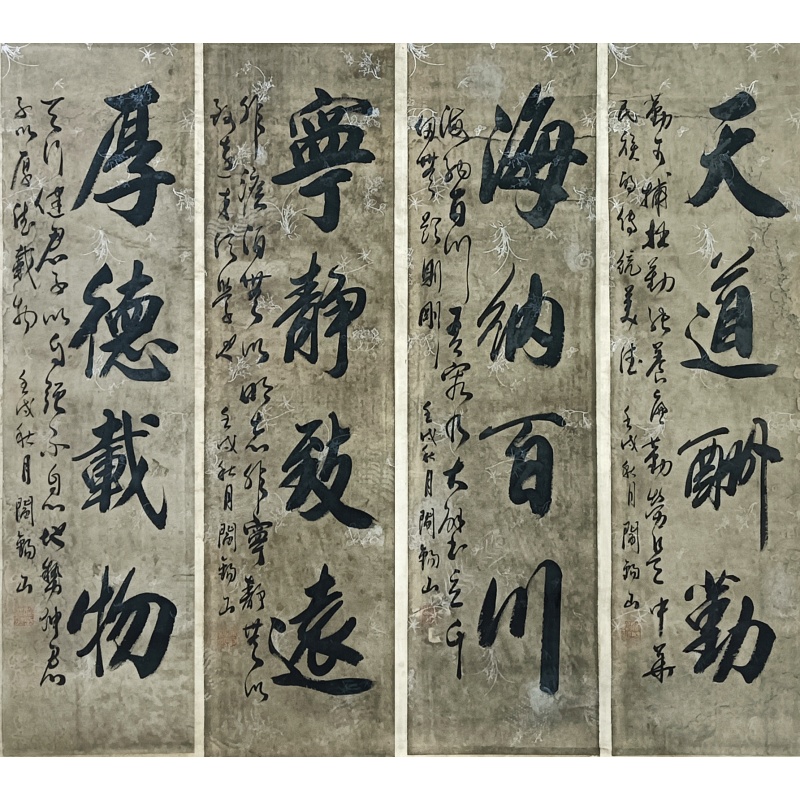 天道酬勤
勤可補拙勤能養廉勤勞是中華
民族的傳統美德 壬戌秋月閻錫山
海納百川
海納百川有容乃大壁立千
仞無欲則剛 壬戌秋月閻錫山
寧靜致遠
非澹泊無以明志非寧靜無以
致遠 學也 壬戌秋月閻錫山
厚德載物
天行健君子以自强不息地勢坤君
子以厚德載物 壬戌秋月閻錫山